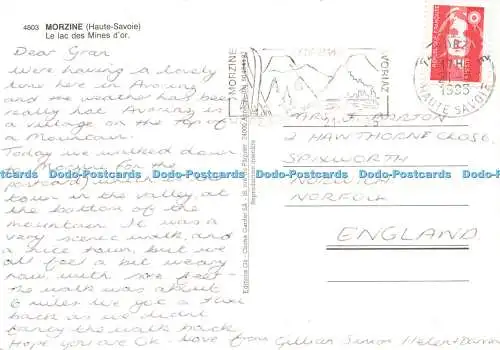 4603 MORZINE (Haute-Savoie)
Le lac des Mines d'or.
Dear Gran
We're having a lovely
time here in Avoriaz
and the weather has been
really hot. Avoriaz is
a village on the top of
a Mountain.
Today we walked down
to Morzine (on the
postcard) which is a
town in the valley at
the bottom of the
mountain. It was a
very scenic walk and
a nice town, but we
all feel a bit weary
now with sore feet -
the walk was about
6 miles. We got a taxi
back as we didn't
fancy the walk back.
Hope you are OK. Love from Gillian Simon Helen + Darren
MORZINE
AVORIAZ
REPUBLIQUE FRANÇAISE
HAUTE SAVOIE
MRS F. BARTON
2 HAWTHORNE CLOSE
SPIXWORTH
NORWICH
NORFOLK
ENGLAND
Reproduction interdite
Postcards Data Postcards Data Postcards Data Postcards Data
www.data-postcards.com